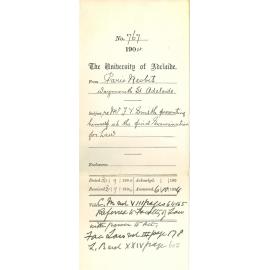 No. 767
190
The University of Adelaide.
From Paris Nesbit
Waymouth St Adelaide.
Subject, re Mr J. V. Smith presenting
himself at the final Examination
for Law
Enclosures
Dated / 9 / 190 Acknowgd. / 190
Received / 9 / 190 Answered 6/10/1904
C. M vol VIII pages
Referred to Faculty of Law
with power to act,
Fac Law vol III page 178
L. B vol XXIV page